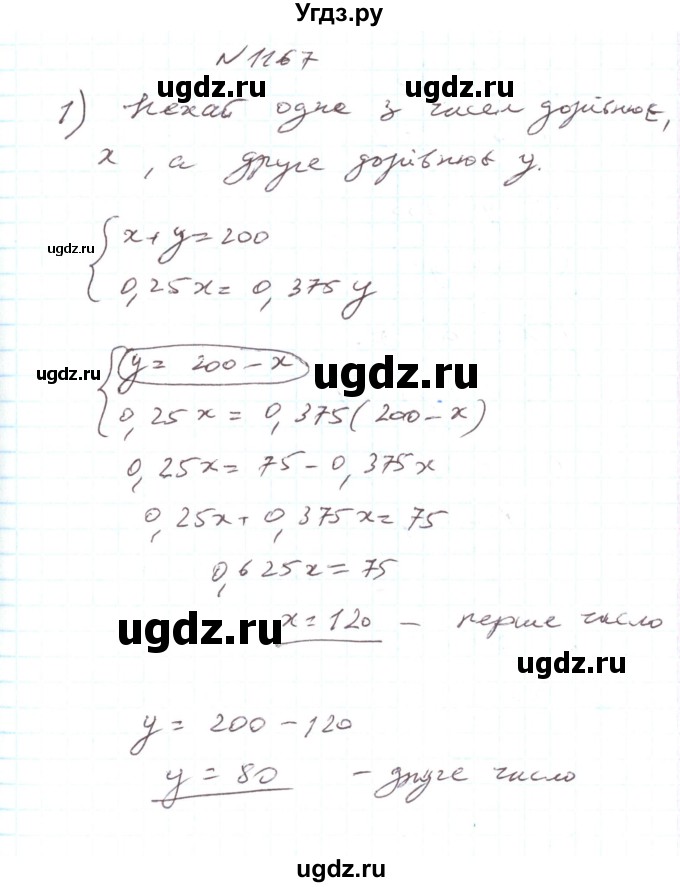 Угдз.ру
№1167
ugdz.ru ugdz.ru
1) Нехай одне з чисел дорівнює,
x, а друге дорівнює y.
ugdz.ru
x + y = 200
0,25x = 0,375y
ugdz.ru
y = 200 - x
ugdz.ru
0,25x = 0,375(200 - x)
0,25x = 75 - 0,375x
0,25x + 0,375x = 75
0,625x = 75
ugdz.ru
x = 120 - перше число
ugdz.ru
y = 200 - 120
y = 80 - друге число
ugdz.ru